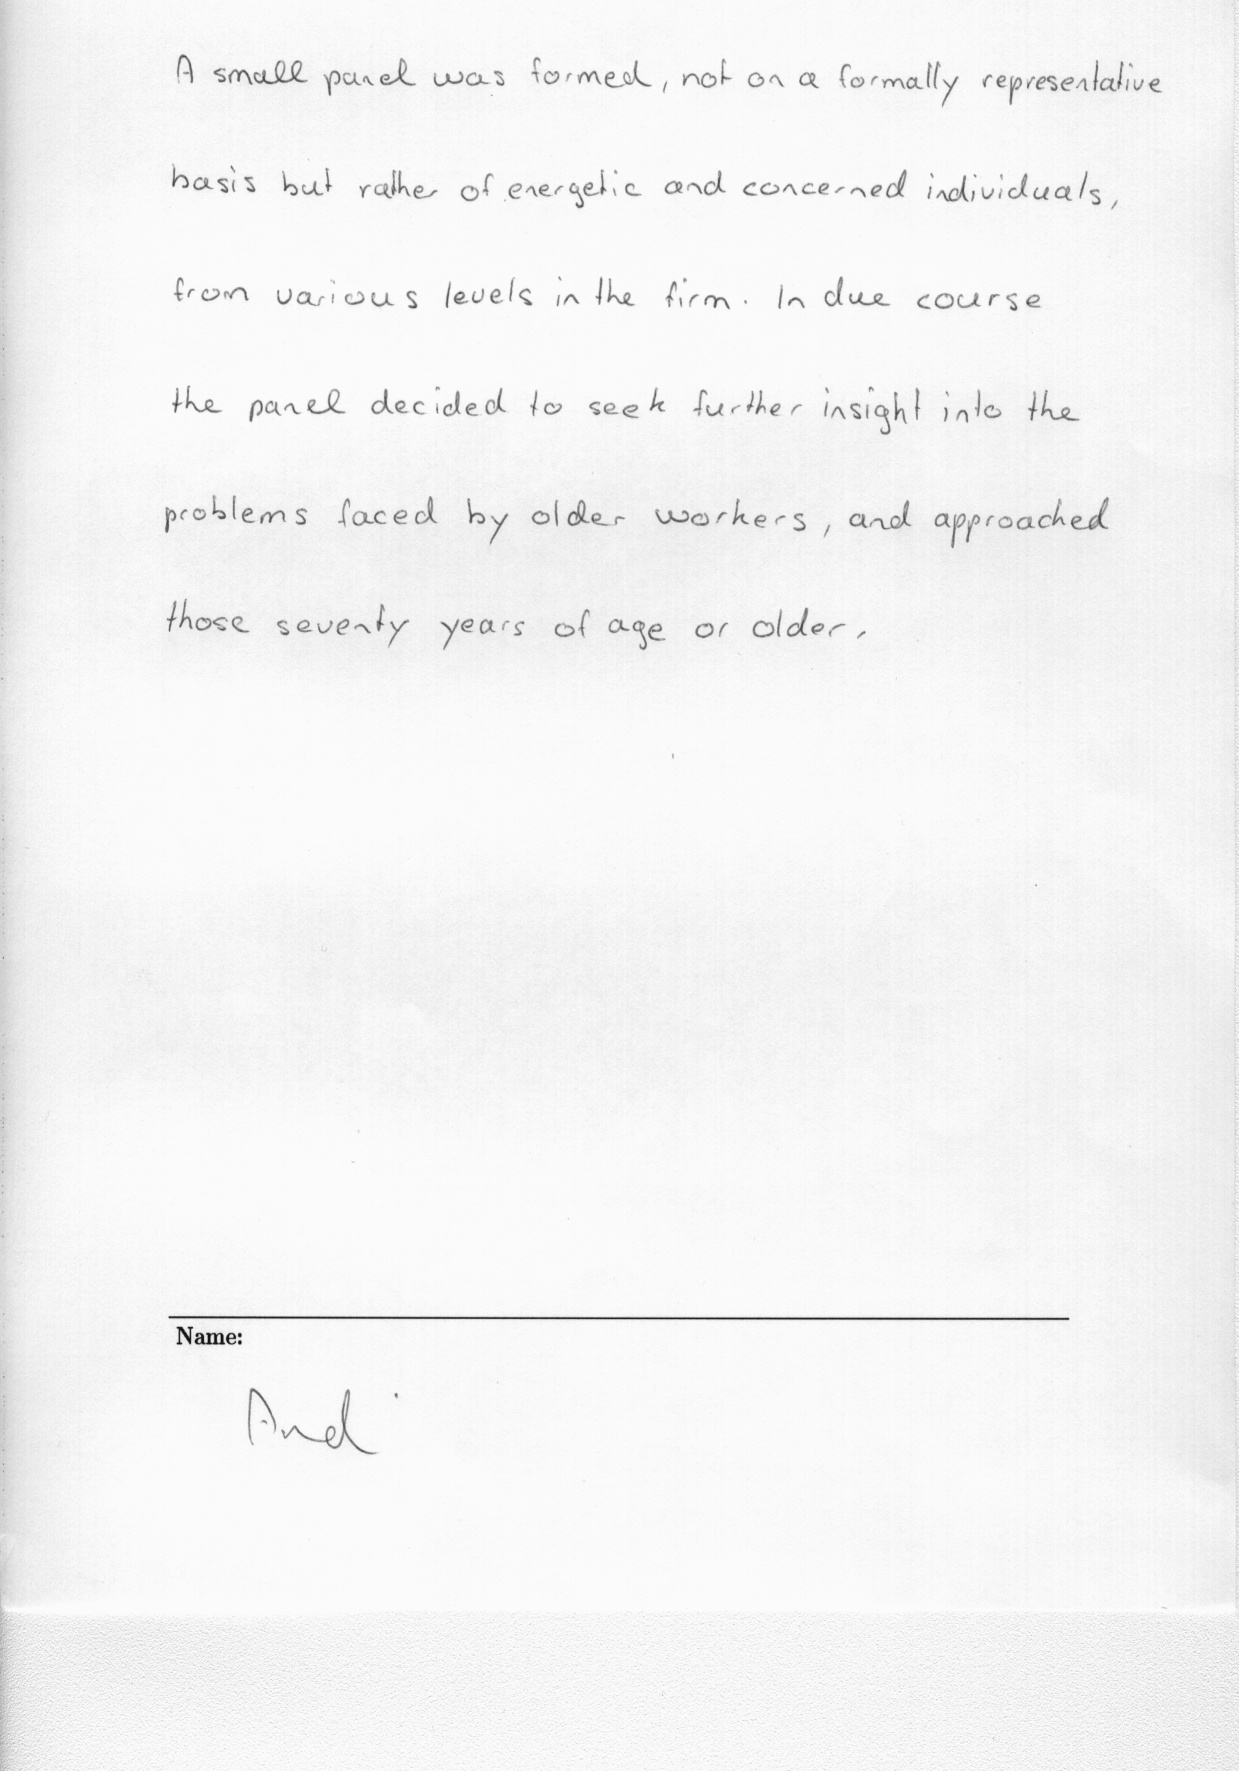 A small panel was formed, not on a formally representative
basis but rather of energetic and concerned individuals,
from various levels in the firm. In due course
the panel decided to seek further insight into the
problems faced by older workers, and approached
those seventy years of age or older.
Name:
Andi